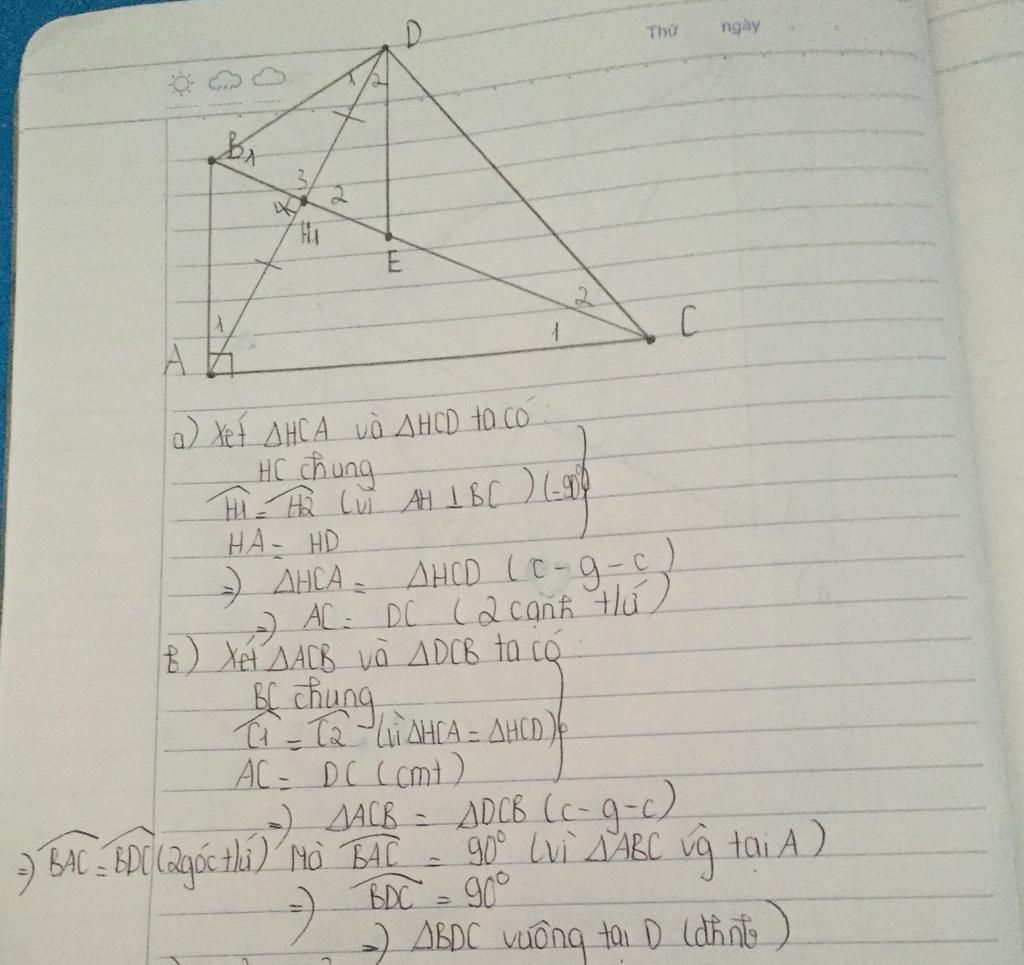 Thứ ngày
D
1 2
B1
3
4 2
H1
E
2
1
1 C
A
a) Xét ΔHCA và ΔHCD ta có
HC chung
Ĥ1 = Ĥ2 (vì AH ⊥ BC) (=90°)
HA = HD
=) ΔHCA = ΔHCD (c-g-c)
=) AC = DC (2 cạnh t/ứ)
b) Xét ΔACB và ΔDCB ta có
BC chung
Ĉ1 = Ĉ2 (vì ΔHCA = ΔHCD)
AC = DC (cmt)
=) ΔACB = ΔDCB (c-g-c)
=) BAC = BDC (2góc t/ứ) Mà BAC = 90° (vì ΔABC vg tại A)
=) BDC = 90°
=) ΔBDC vuông tại D (đhnb)